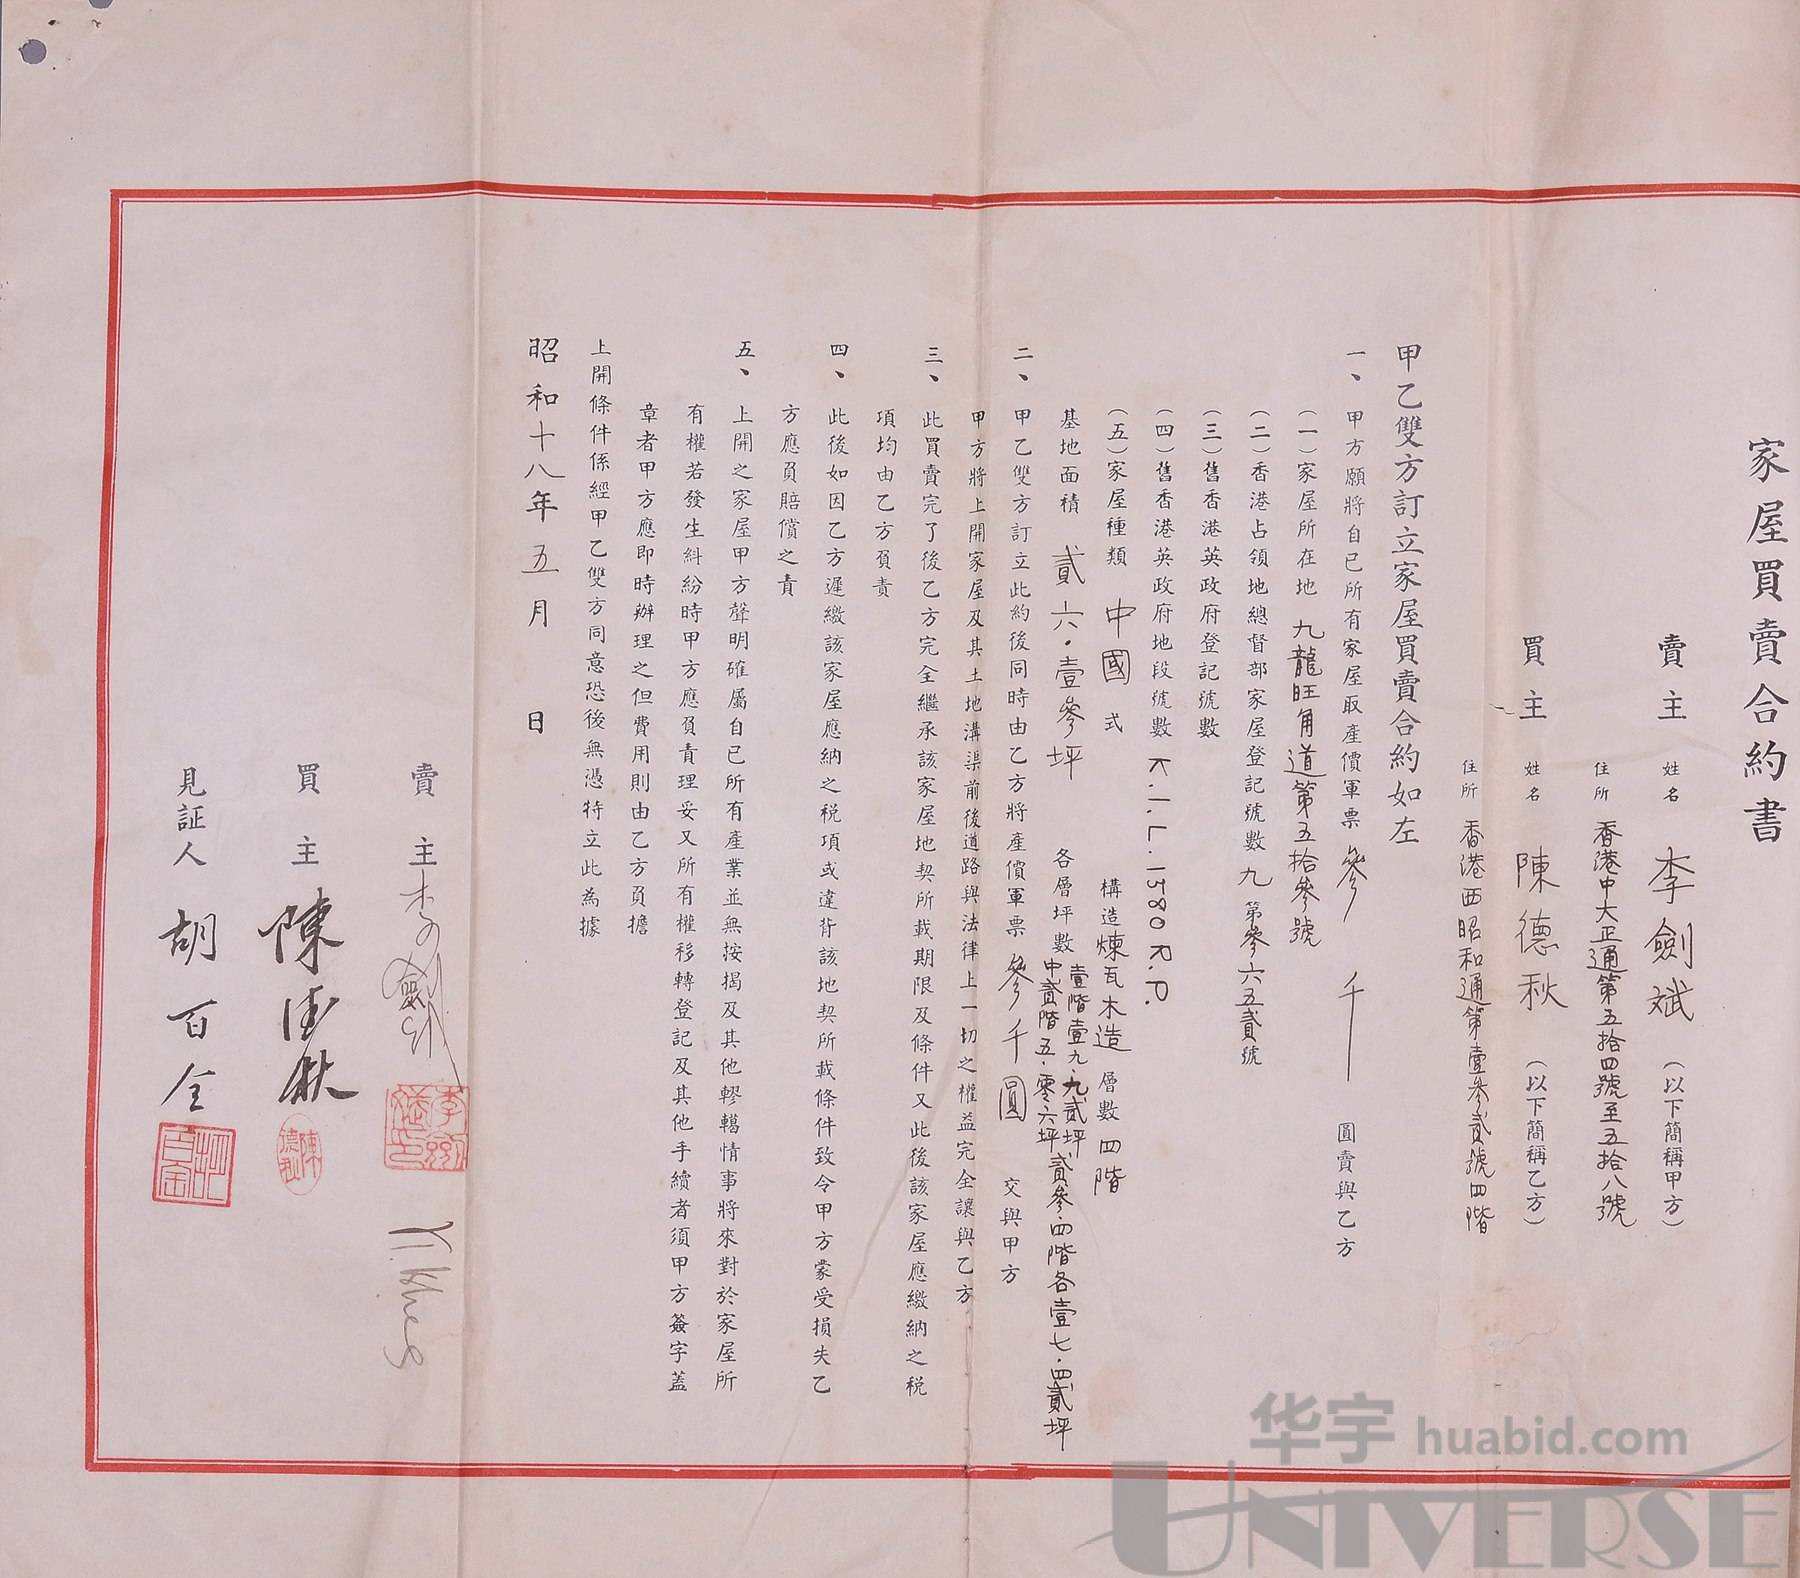 家屋買賣合約書
賣主 姓名 李劍斌 （以下簡稱甲方）
住所 香港中大正通第五拾四號至五拾八號
買主 姓名 陳德秋 （以下簡稱乙方）
住所 香港西昭和通第壹參貳號四階
甲乙雙方訂立家屋買賣合約如左
一、甲方願將自已所有家屋取產價軍票 參千 圓賣與乙方
（一）家屋所在地 九龍旺角道第五拾參號
（二）香港占領地總督部家屋登記號數 九第參六五貳號
（三）舊香港英政府登記號數
（四）舊香港英政府地段號數 K.I.L.1580 R.P.
（五）家屋種類 中國式 構造 煉瓦木造 層數 四階
基地面積 貳六·壹參坪 各層坪數 壹階壹九·九貳坪 中貳階五·零六坪 貳參·四階各壹七·四貳坪
二、甲乙雙方訂立此約後同時由乙方將產價軍票 參千圓 交與甲方
甲方將上開家屋及其土地溝渠前後道路與法律上一切之權益完全讓與乙方
三、此買賣完了後乙方完全繼承該家屋地契所載期限及條件又此後該家屋應繳納之稅
項均由乙方負責
四、此後如因乙方遲繳該家屋應納之稅項或違背該地契所載條件致令甲方蒙受損失乙
方應負賠償之責
五、上開之家屋甲方聲明確屬自已所有產業並無按揭及其他轇轕情事將來對於家屋所
有權若發生糾紛時甲方應負責理妥又所有權移轉登記及其他手續者須甲方簽字蓋
章者甲方應即時辦理之但費用則由乙方負擔
上開條件係經甲乙雙方同意恐後無憑特立此為據
昭和十八年五月 日
賣主 李劍斌
買主 陳德秋
陳德秋
見証人 胡百全
胡百全
华宇 huabid.com
UNIVERSE